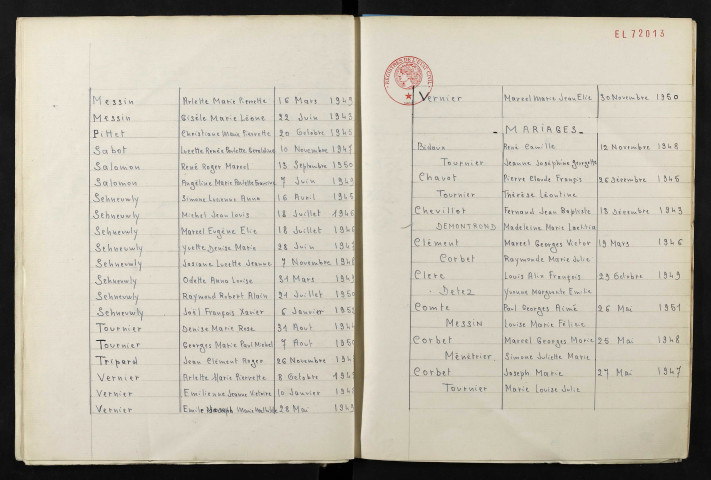 Messin Arlette Marie Pierrette 15 Mars
Messin Gisèle Marie Léone 22 Juin 1943
Pittet Christiane Marie Pierrette 20 Octobre 1945
Sabot Lucette Renée Paulette Géraldine 10 Novembre 1947
Salomon René Roger Marcel 13 Septembre 1950
Salomon Angéline Marie Paulette Francine 7 Juin
Schneuwly Simone Anna 16 Avril 1945
Schneuwly Michel Jean Louis 18 Juillet 1946
Schneuwly Marcel Eugène Elie 18 Juillet 1946
Schneuwly Yvette Denise Marie 28 Juin
Schneuwly Josiane Lucette Jeanne 9 Novembre
Schneuwly Odette Anna Louise 31 Mars
Schneuwly Raymond Robert Alain 21 Juillet 1950
Schneuwly Joël François Xavier 6 Janvier
Tournier Denise Marie Rose 31 Août
Tournier Georges Marie Paul Michel 7 Août
Tripard Jean Clément Roger 26 Novembre
Vernier Arlette Marie Pierrette 8 Octobre
Vernier Emilienne Jeanne Victoire 10 Janvier
Vernier Emile Joseph Marie 28 Mai
EL 72013
REGISTRES DE L'ETAT CIVIL
Vernier Marcel Marie Jean Elie 30 Novembre 1950
- MARIAGES -
Bedoux René Camille 12 Novembre 1948
Tournier Jeanne Joséphine Georgette
Chavot Pierre Claude François 26 Décembre 1945
Tournier Thérèse Léontine
Chevillot Fernand Jean Baptiste 18 Décembre 1943
DEMONTROND Madeleine Marie Laetitia
Clément Marcel Georges Victor 19 Mars 1946
Corbet Raymonde Marie Julie
Clerc Louis Alix François 29 Octobre 1949
Detez Yvonne Marguerite Emilie
Comte Paul Georges Aimé 26 Mai 1951
Messin Louise Marie Félicie
Corbet Marcel Georges Marie 25 Mai 1948
Ménétrier Simone Juliette Marie
Corbet Joseph Marie 27 Mai 1947
Tournier Marie Louise Julie